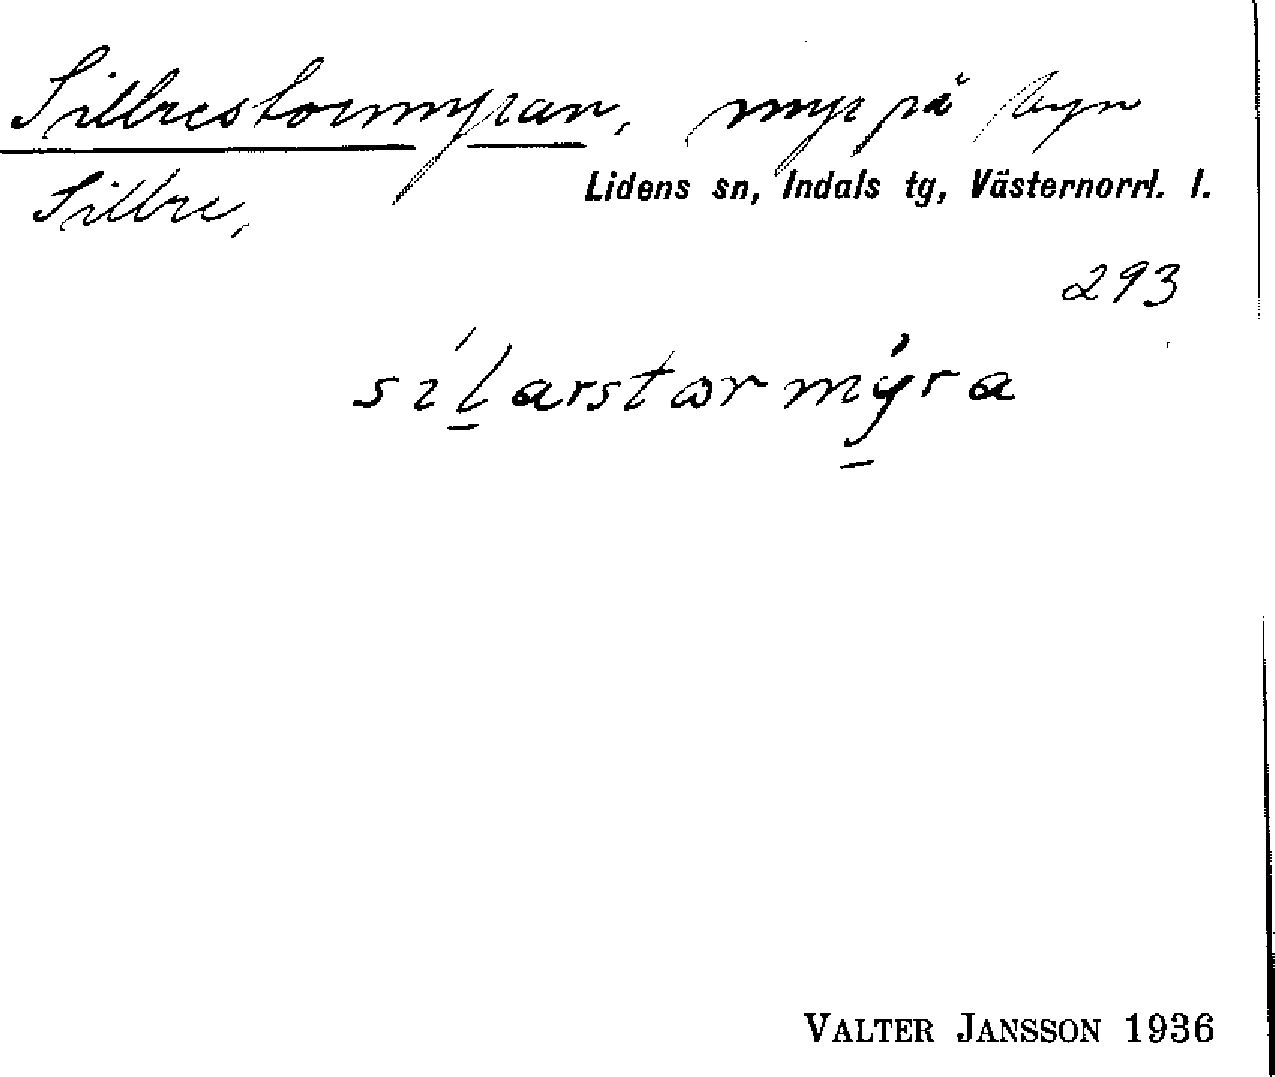 Sillrestormyran, myr på byn
Sillre, Lidens sn, Indals tg, Västernorrl. l.
293
VALTER JANSSON 1936